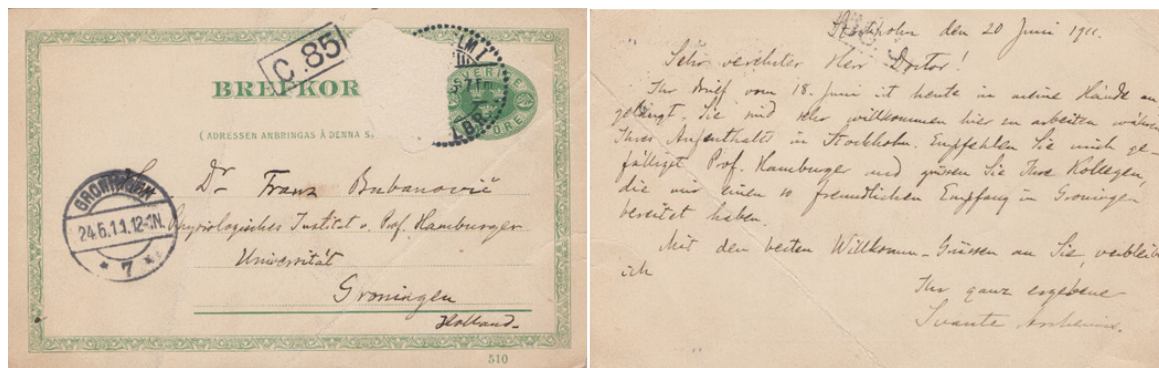 C.85
BREFKOR
SVERIGE
ÖRE
LBR.
(ADRESSEN ANBRINGAS Å DENNA S
GRONINGEN
24.6.11.12-1N.
* 7 *
Dr Franz Bubanović
Physiologisches Institut v. Prof. Hamburger
Universität
Groningen
Holland
510
Stockholm den 20 Juni 1911.
Sehr verehrter Herr Doctor!
Ihr Brief vom 18. Juni ist heute in meine Hände an
gelangt. Sie sind sehr willkommen hier zu arbeiten während
Ihres Aufenthalts in Stockholm. Empfehlen Sie mich ge-
fälligst Prof. Hamburger und grüssen Sie Ihre Kollegen,
die mir einen so freundlichen Empfang in Groningen
bereitet haben.
Mit den besten Willkomm-Grüssen an Sie, verbleibe
ich
Ihr ganz ergebener
Svante Arrhenius.